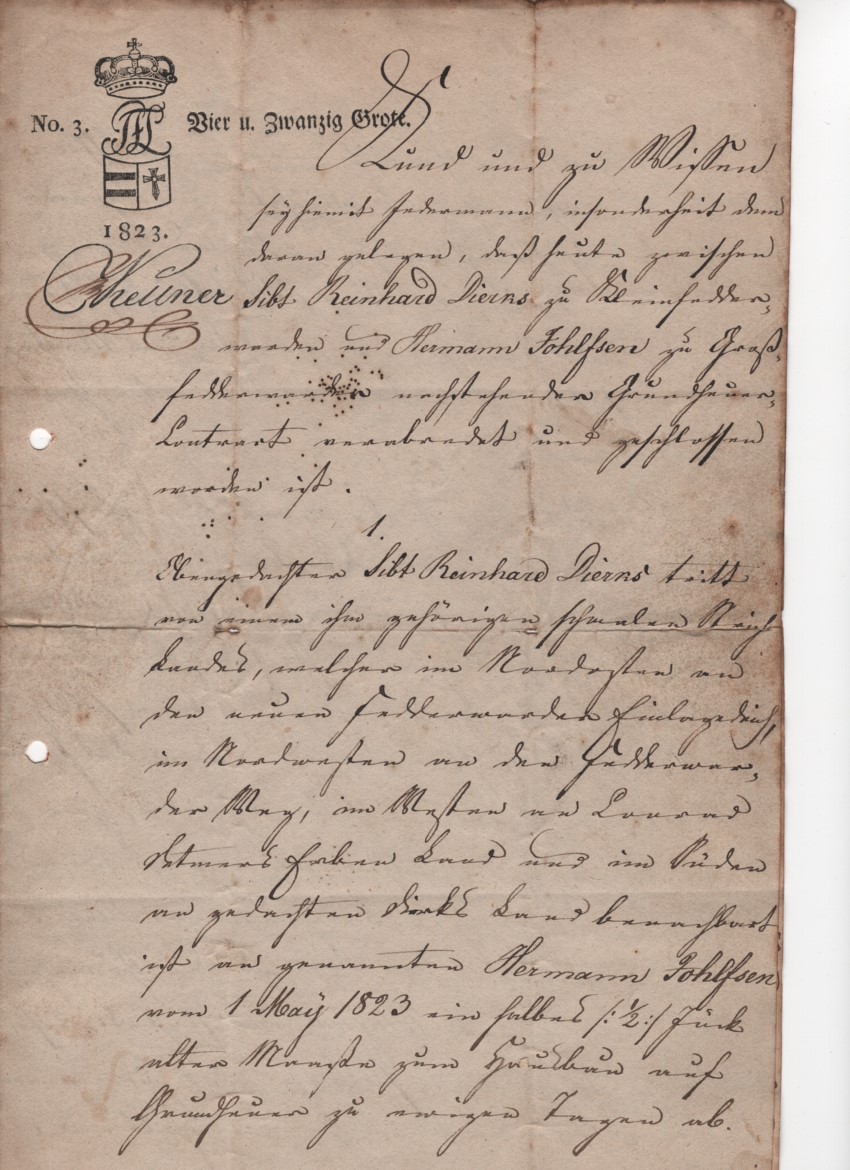 No. 3. Vier u. Zwanzig Grote.
1823.
Kund und zu Wissen
sey hiemit Jedermann, insonderheit dem
daran gelegen, daß heute zwischen
Sibt Reinhard Dierks zu Kleinfedder-
warden und Hermann Fohlfsen zu Groß-
fedderwarden nachstehender Grundheuer-
Contract verabredet und geschlossen
worden ist.
1.
Obengedachter Sibt Reinhard Dierks tritt
von einem ihm gehörigen schmalen Strich
Landes, welcher im Nordosten an
den neuen Fedderwarder Einlagedeich,
im Nordwesten an den Fedderwar-
der Weg, im Westen an Conrad
Detmers Erben Land und im Süden
an gedachten Dierks Land benachbart
ist an genannten Hermann Fohlfsen
vom 1 May 1823 ein halbes /: 1/2 :/ Jück
alter Maaße zum Hausbau auf
Grundheuer zu ewigen Tagen ab.